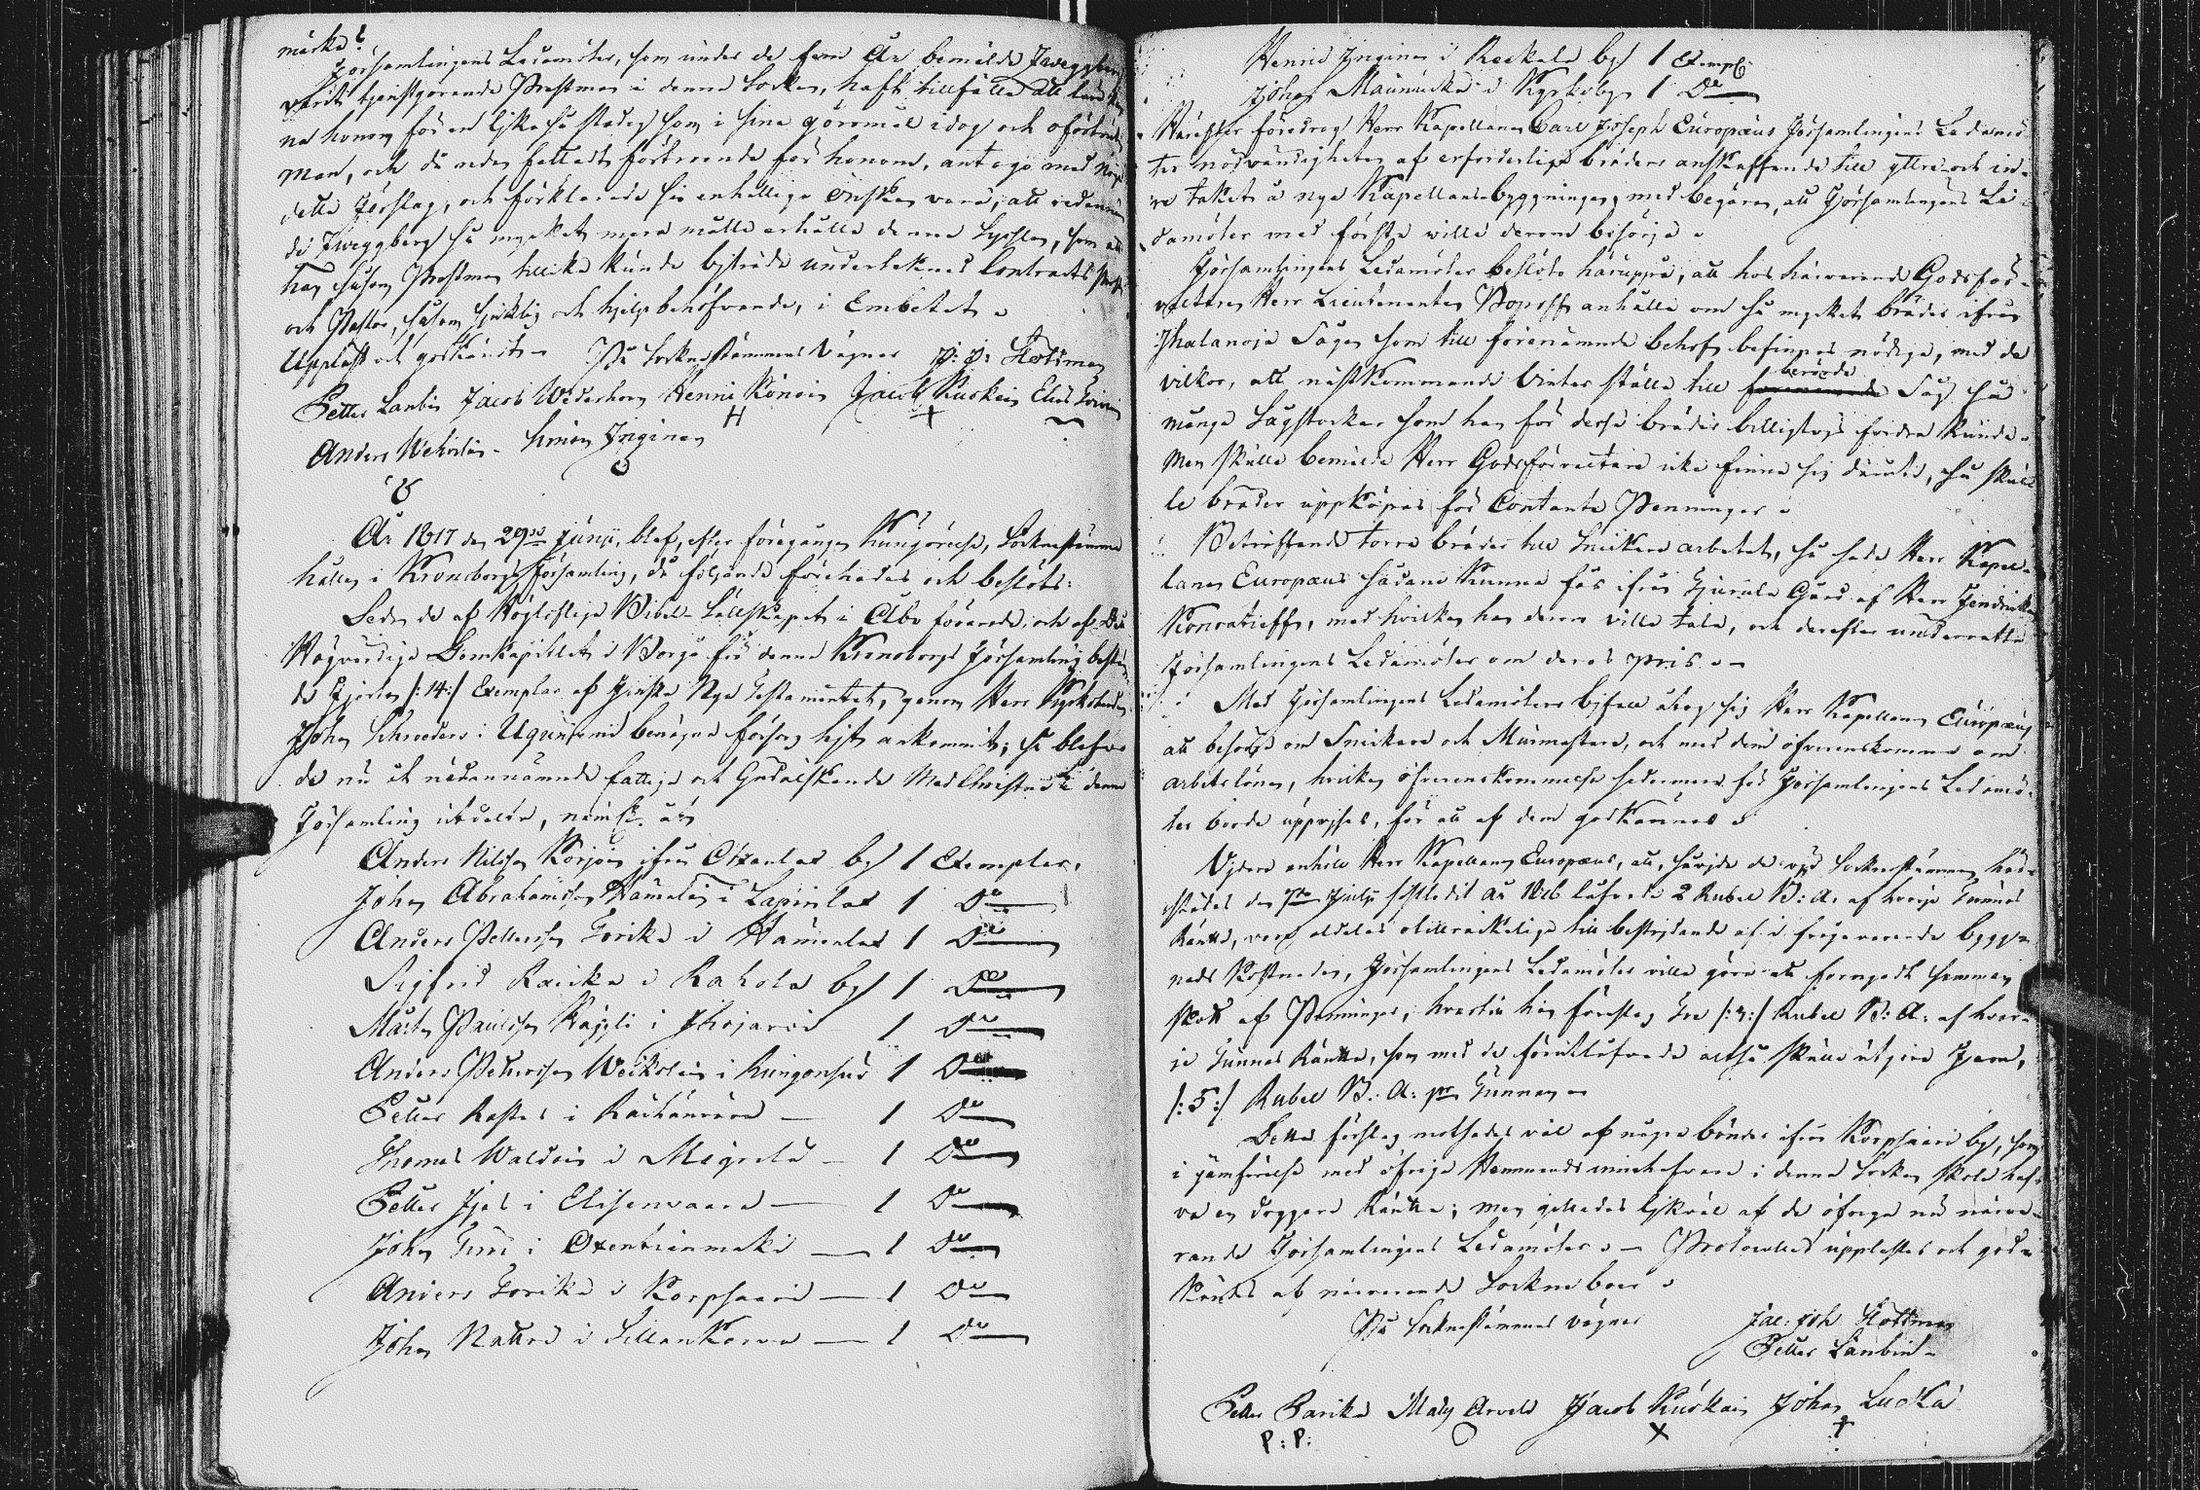 märka?
Församlingens Ledamöter, som under de fem År bemälde Zweggberg
varit tjenstgörande Prestman i denna Socken, haft tillfälle att lära kän-
na honom för en lika så stadig som i sina göromål idog och oförtruten
man, och då redan fattadt förtroende för honom, antogo med nöje
detta Förslag, och förklarade sin enhälliga önskan vara, att
Zweggberg så mycket mera måtte erhålla denna Syssla, som att
han såsom Prestman tillika kunde biträda undertecknad Contracts Prost
och Pastor, såsom sjuklig och hjelpbehöfvande, i Embetet.
Uppläst och godkändt. På Sockenstämmans Vägnar J: J: Hoffman
Petter Lanbin Jacob Wederhorn Henric Könöin Jacob Kuskein Elias
H + ~
Anders Weikolain. Simon Inginen
År 1817 den 29de Junii, blef, efter föregången Kungörelse, Sockenstämma
hållen i Kronoborgs församling, då följande förehades och beslöts:
Sedan de af Höglofliga Bibel-Sällskapet i Åbo förärade, och af det
Högvördiga Domkapitlet i Borgå för denna Kronoborgs Församling bestäm-
da Fjorton /:14:/ Exemplar af Finska Nya Testamentet, genom Herr Kyrkoherden
Johan Schroeders i Uguniemi benägna försorg hit ankommit, så blefvo
de nu åt nedannämnde fattige och Gudälskande Med Christna i denna
Församling utdelde, nämligen åt
Anders Nilsson Korjoin ifrån Otzanlax by 1 Exemplar.
Johan Abrahamsson Hämäläin i Lapinlax 1 Do
Anders Pettersson Torikka i Haunlax 1 Do
Sigfrid Raicka i Rahola by 1 Do
Mårten Paulsson Käypi i Ihojärvi 1 Do
Anders Petersson Weikolain i Kungonsud 1 Do
Petter Rastas i Räihänvara — 1 Do
Thomas Waldein i Migrilä — 1 Do
Petter Ijäs i Elisenvaara — 1 Do
Johan i Oxentrinmäki — 1 Do
Anders Torikka i Korpsaari — 1 Do
Johan Nakari i Sillankorva — 1 Do
Henric Inginen i Räckälä by 1 Exempl:
Johan Maunucka i Kyrkoby 1 Do
Härefter föredrog Herr Kapellanen Carl Joseph Europæus Församlingens Ledamö-
ter nödvändigheten af erforderliga bräders anskaffande till yttre och in-
re taket å nya Kapellansbyggningen, med begäran, att Församlingens Le-
damöter med första ville derom besörja.
Församlingens Ledamöter beslöto häruppå, att hos härvarande Godsför-
valtaren Herr Lieutenanten Popoff anhålla om så mycket bräder ifrån
Ihalanoja Sågen som till förenämnde behof befinnas nödige, med de
vilkor, att nästkommande Vinter ställa till berörde Såg så
månge Sågstockar som han för desse bräder billigtvis fordra kunde.
Men skulle bemälde Herr Godsförvaltare icke finna sig däruti, så skul-
le bräder uppköpas för Contanta Penningar.
Beträffande torra bräder till Snickare arbetet, så sade Herr Kapel-
lanen Europæus sådane kunna fås ifrån Gård af Herr
Konratieff, med hvilken han derom ville tala, och derefter underrätta
Församlingens Ledamöter om deras pris.
Med Församlingens Ledamöters bifall åtog sig Herr Kapellanen Europæus
att besörja om Snickare och Murmästare, och med dem öfverenskomma om
arbetslönen, hvilken öfverenskommelse sedermera för Församlingens Ledamö-
ter borde uppvisas, för att af dem godkännas.
Vidare anhöll Herr Kapellanen Europæus, att, såvida de vid Sockenstämman här-
städes den 7de Julii sistledit År 1816 lofvade 2 Rubel B: A: af hvarje Tunnas
Ränta, voro aldeles otillräckelige till bestridande af i frågavarande bygg-
nads kostnader, Församlingens Ledamöter ville göra ett förnyadt samman-
skott af Penningar, hvartill han föreslog Tre /:3:/ Rubel B: A: af hvar-
je Tunnas Ränta, som med de förutlofvade altså skulle utgöra Fem,
/:5:/ Rubel B: A: pr Tunnan.
Detta förslag motsades väl af några bönder ifrån Korpsaari by, som
i jämförelse med öfrige Hemmansinnehafvare i denna Socken skola haf-
va en dryggare Ränta; men gillades likväl af de öfrige nu närva-
rande Församlingens Ledamöter. — Protocollet upplästes och god-
kändes af närvarande Sockneboer.
På Sockenstämmans vägnar Jac: Joh Hoffman
Petter Lanbin.
Petter Parikka Mats Arvele Jacob Kuskain Johan Luckä
P: P: O X +